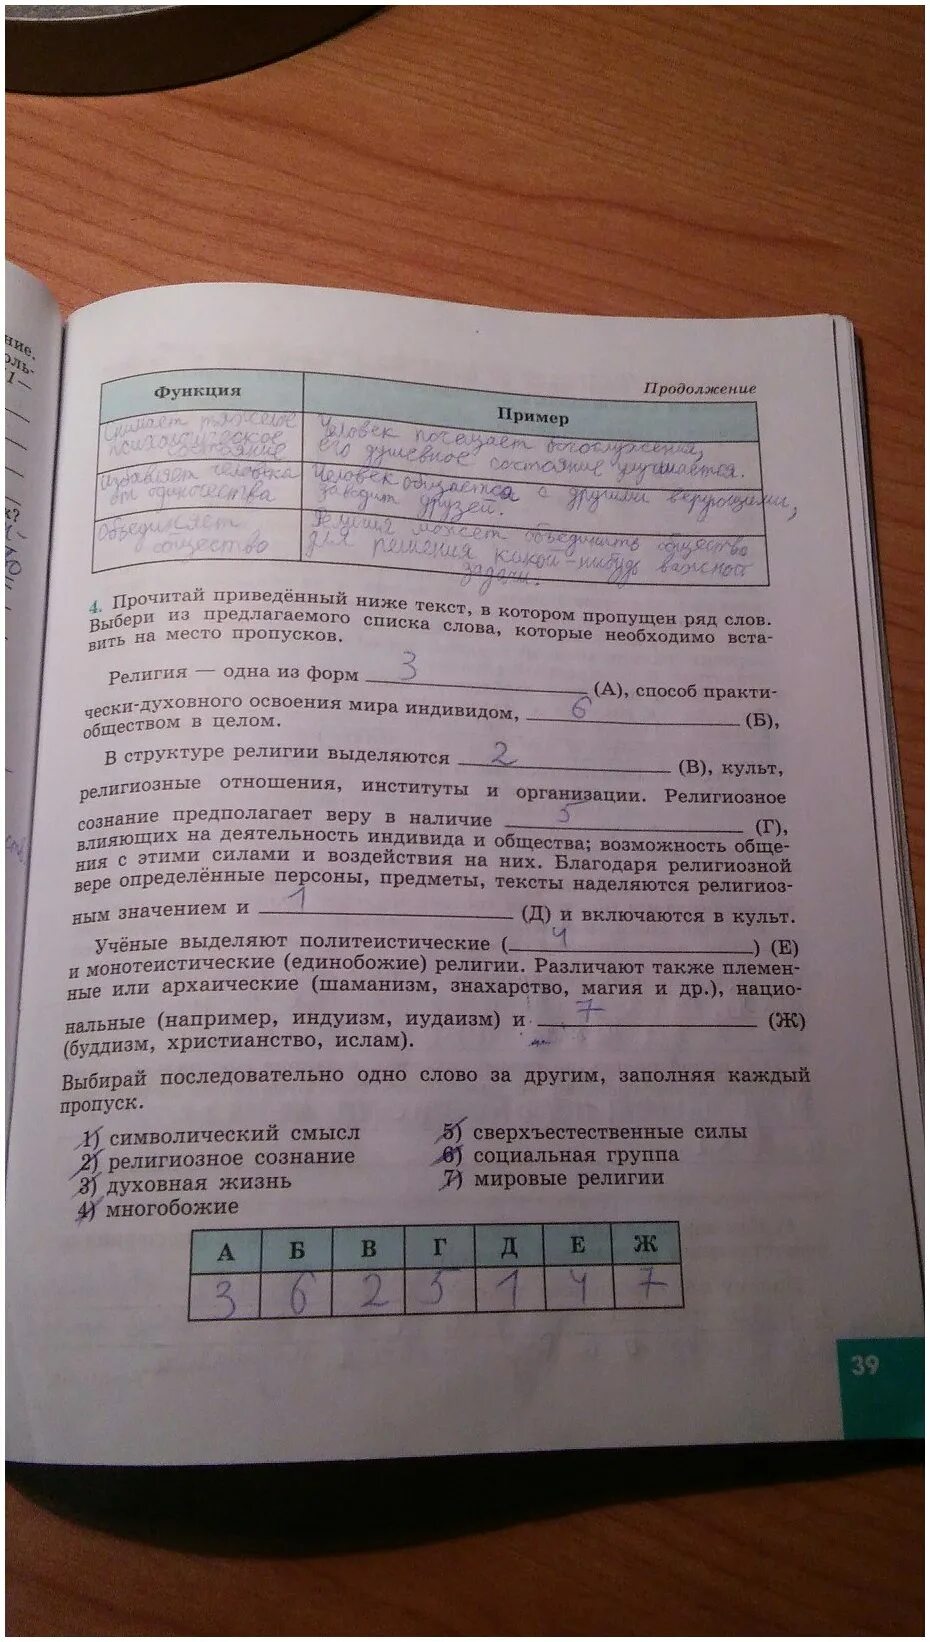 ние.
оль-
1—
к?
Продолжение
Функция
Пример
Снимает тяжёлое
психологическое
состояние
Человек посещает богослужения,
его душевное состояние улучшается.
Избавляет человека
от одиночества
Человек общается с другими верующими,
заводит друзей.
Объединяет
общество
Религия может объединить общество
для решения какой-нибудь важной
задачи.
4. Прочитай приведённый ниже текст, в котором пропущен ряд слов.
Выбери из предлагаемого списка слова, которые необходимо вста-
вить на место пропусков.
Религия — одна из форм 3 (А), способ практи-
чески-духовного освоения мира индивидом, 6 (Б),
обществом в целом.
В структуре религии выделяются 2 (В), культ,
религиозные отношения, институты и организации. Религиозное
сознание предполагает веру в наличие 5 (Г),
влияющих на деятельность индивида и общества; возможность обще-
ния с этими силами и воздействия на них. Благодаря религиозной
вере определённые персоны, предметы, тексты наделяются религиоз-
ным значением и 1 (Д) и включаются в культ.
Учёные выделяют политеистические (4) (Е)
и монотеистические (единобожие) религии. Различают также племен-
ные или архаические (шаманизм, знахарство, магия и др.), нацио-
нальные (например, индуизм, иудаизм) и 7 (Ж)
(буддизм, христианство, ислам).
Выбирай последовательно одно слово за другим, заполняя каждый
пропуск.
1) символический смысл
2) религиозное сознание
3) духовная жизнь
4) многобожие
5) сверхъестественные силы
6) социальная группа
7) мировые религии
А Б В Г Д Е Ж
3 6 2 5 1 4 7
39